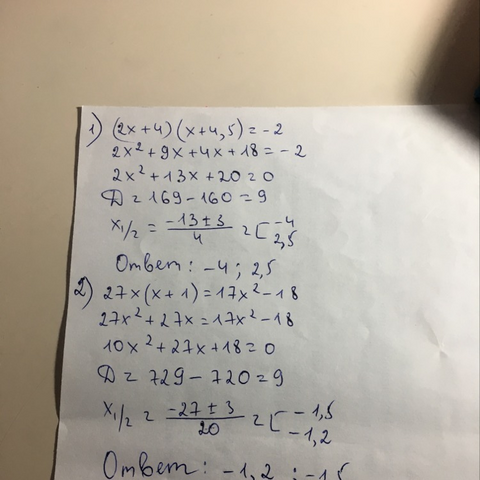 1) (2x+4)(x+4,5)=-2
2x²+9x+4x+18=-2
2x²+13x+20=0
D=169-160=9
x1/2 = -13±3/4 = [-4 2,5
Ответ: -4; 2,5
2) 27x(x+1)=17x²-18
27x²+27x=17x²-18
10x²+27x+18=0
D=729-720=9
x1/2 = -27±3/20 = [-1,5 -1,2
Ответ: -1,2; -1,5